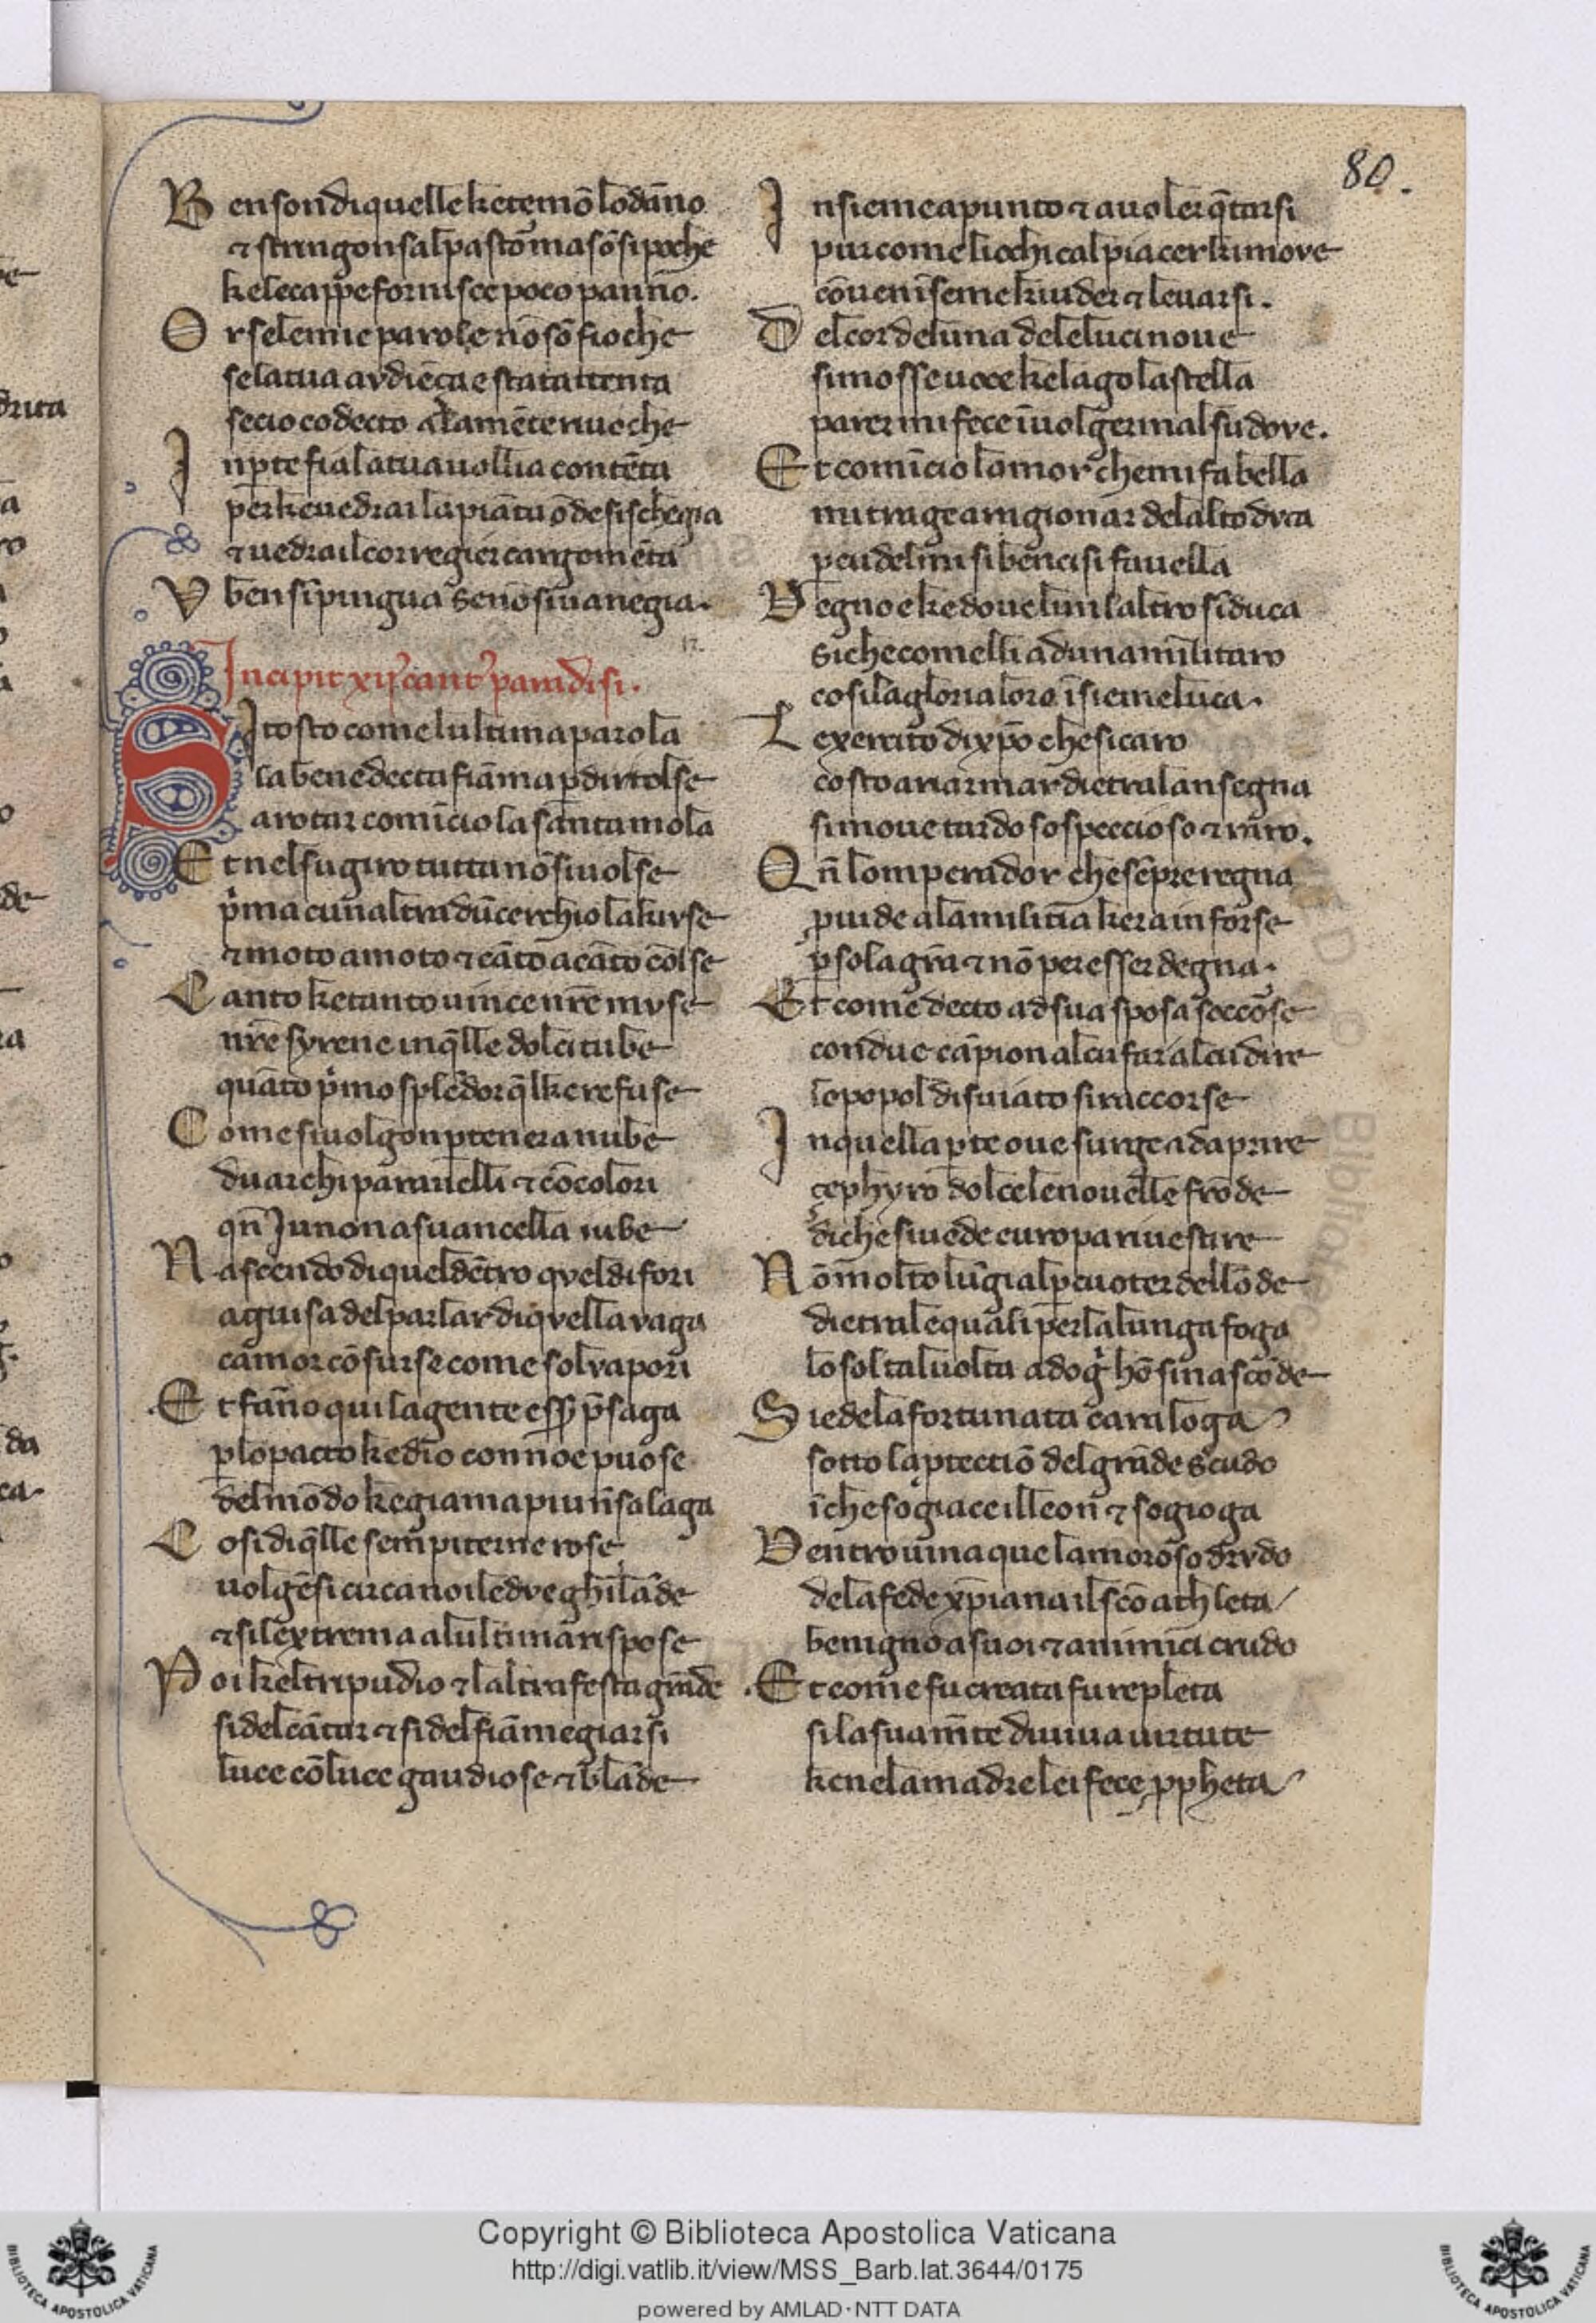 80.
B en son di quelle ke temō lo dāno
⁊ stringonsal pastōr ma sō si poche
ke le cappe fornisce poco panno.
O r se le mie parole nō sō fioche
se la tua ardiēça e stata attenta
se cio co decto a la mēte riuoche
I n pte fia la tua uollia contēta
per ke uedrai la piāta ōde si schegia
⁊ uedrai l corregier cargomēta
V ben si pingua se nō si uanegia.
Incipit xij cant paradisi.
S I tosto come lultima parola
la benedecta fiāma p dir tolse
a rotar comīcio la santa mola
E t nel su giro tutta nō si uolse
pma cunaltra dū cerchio la kiuse
⁊ moto a moto ⁊ cāto a cāto colse
C anto ke tanto uince nrē muse
nrē syrene in qlle dolci tube
quāto pmo spledor ql ke refuse
C ome si uolgon p tenera nube
du archi paralelli ⁊ cōcolori
qn Junon a sua ncella iube
N ascendo di quel dētro quel di fori
a guisa del parlar di quella vaga
camor cōsunse come sol vapori
E t fāno qui la gente essr psaga
p lo pacto ke dio con noe puose
del mōdo ke gia mai piu n salaga
C osi di qlle sempiterne rose
uolgēsi circa noi le due ghirlāde
⁊ si lextrema a lultima rispose
P oi kel tripudio ⁊ laltra festa grāde
si del cātar ⁊ si del fiāmegiarsi
luce cō luce gaudiose ⁊ blāde
I nsieme a punto ⁊ a uoler qtarsi
pur come liochi cal piacer ki move
cōuen īseme kiuder ⁊ leuarsi.
D el cor de luna de le luci noue
si mosse uoce ke lago la stella
parer mi fece ī uolgermi al su dove.
E t comīcio lamor che mi fa bella
mi tragea ragionar de laltro duca
p cui del mi si ben ci si fauella
D egno e ke doue lun laltro si duca
si che comelli ad una militaro
cosi la gloria loro īsieme luca.
L exercito di xpo che si caro
costo a riarmar dietra lansegna
si moue tardo sospeccioso ⁊ raro.
Q n lomperador che sēpre regna
puide a la militia kera in forse
p sola gra ⁊ nō per esser degna.
E t come decto a sua sposa soccorse
con due cāpioni al cui far al cui dire
lo popol disuiato si raccorse
I n quella pte oue surge ad aprire
cephyro dolce le nouelle frōde
di che si uede europa riuestire
N ō molto lugi al pcuoter de londe
dietra le quali per la lunga foga
lo sol tal uolta ad og hō si nascōde
S i e de la fortunata caraloga
sotto la ptectiō del grāde scudo
ī che sogiace il leon ⁊ sogioga
D entro ui naque lamoroso drudo
de la fede xpiana il scō athleta
benigno a suoi ⁊ a nimici crudo
E t come fu creata fu repleta
si la sua mte di uiua uirtute
ke ne la madre lei fece ppheta
Copyright © Biblioteca Apostolica Vaticana
http://digi.vatlib.it/view/MSS_Barb.lat.3644/0175
powered by AMLAD·NTT DATA